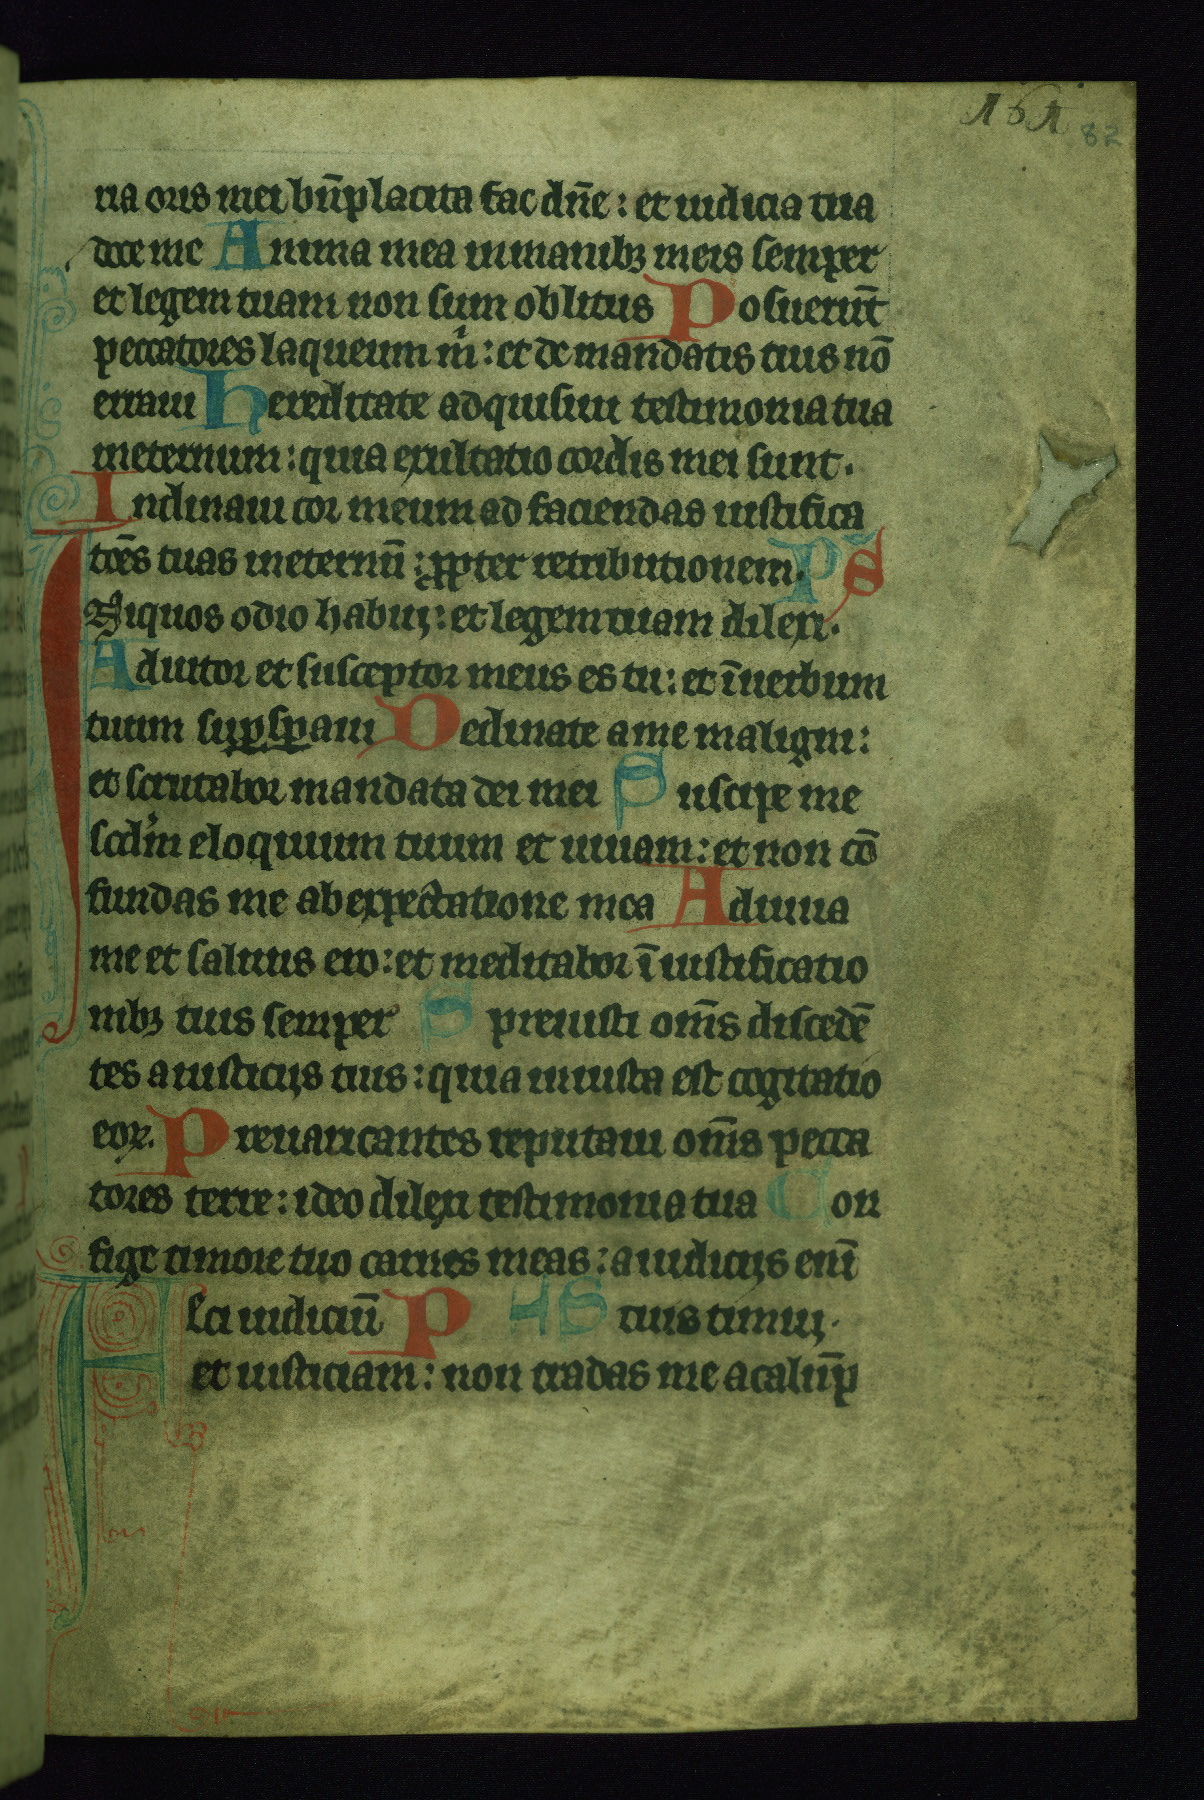 161 82
ria oris mei bn̄placita fac dn̄e : et iudicia tua
doce me Anima mea in manibꝫ meis semper
et legem tuam non sum oblitus Posuerūt
peccatores laqueum m̍ : et de mandatis tuis nō
erraui Hereditate adquisiui testimonia tua
ineternum : quia exultatio cordis mei sunt .
Inclinaui cor meum ad faciendas iustifica
tōēs tuas ineternū : ꝓpter retributionem. P̄S
Iniquos odio habui : et legem tuam dilexi .
Adiutor et susceptor meus es tu : et ī uerbum
tuum suꝑsꝑaui Declinate a me maligni :
et scrutabor mandata dei mei Suscipe me
scd̄m eloquium tuum et uiuam : et non cō
fundas me ab expectatione mea Adiuua
me et saluus ero : et meditabor ī iustificatio
nibꝫ tuis semper Spreuisti om̄s discedē
tes a iusticijs tuis : quia iniusta est cogitatio
eoꝝ. Preuaricantes reputaui om̄s pecca
tores terre : ideo dilexi testimonia tua Con
fige timore tuo carnes meas : a iudicijs enī
Feci iudiciū P AS tuis timui .
et iusticiam : non tradas me a calūp